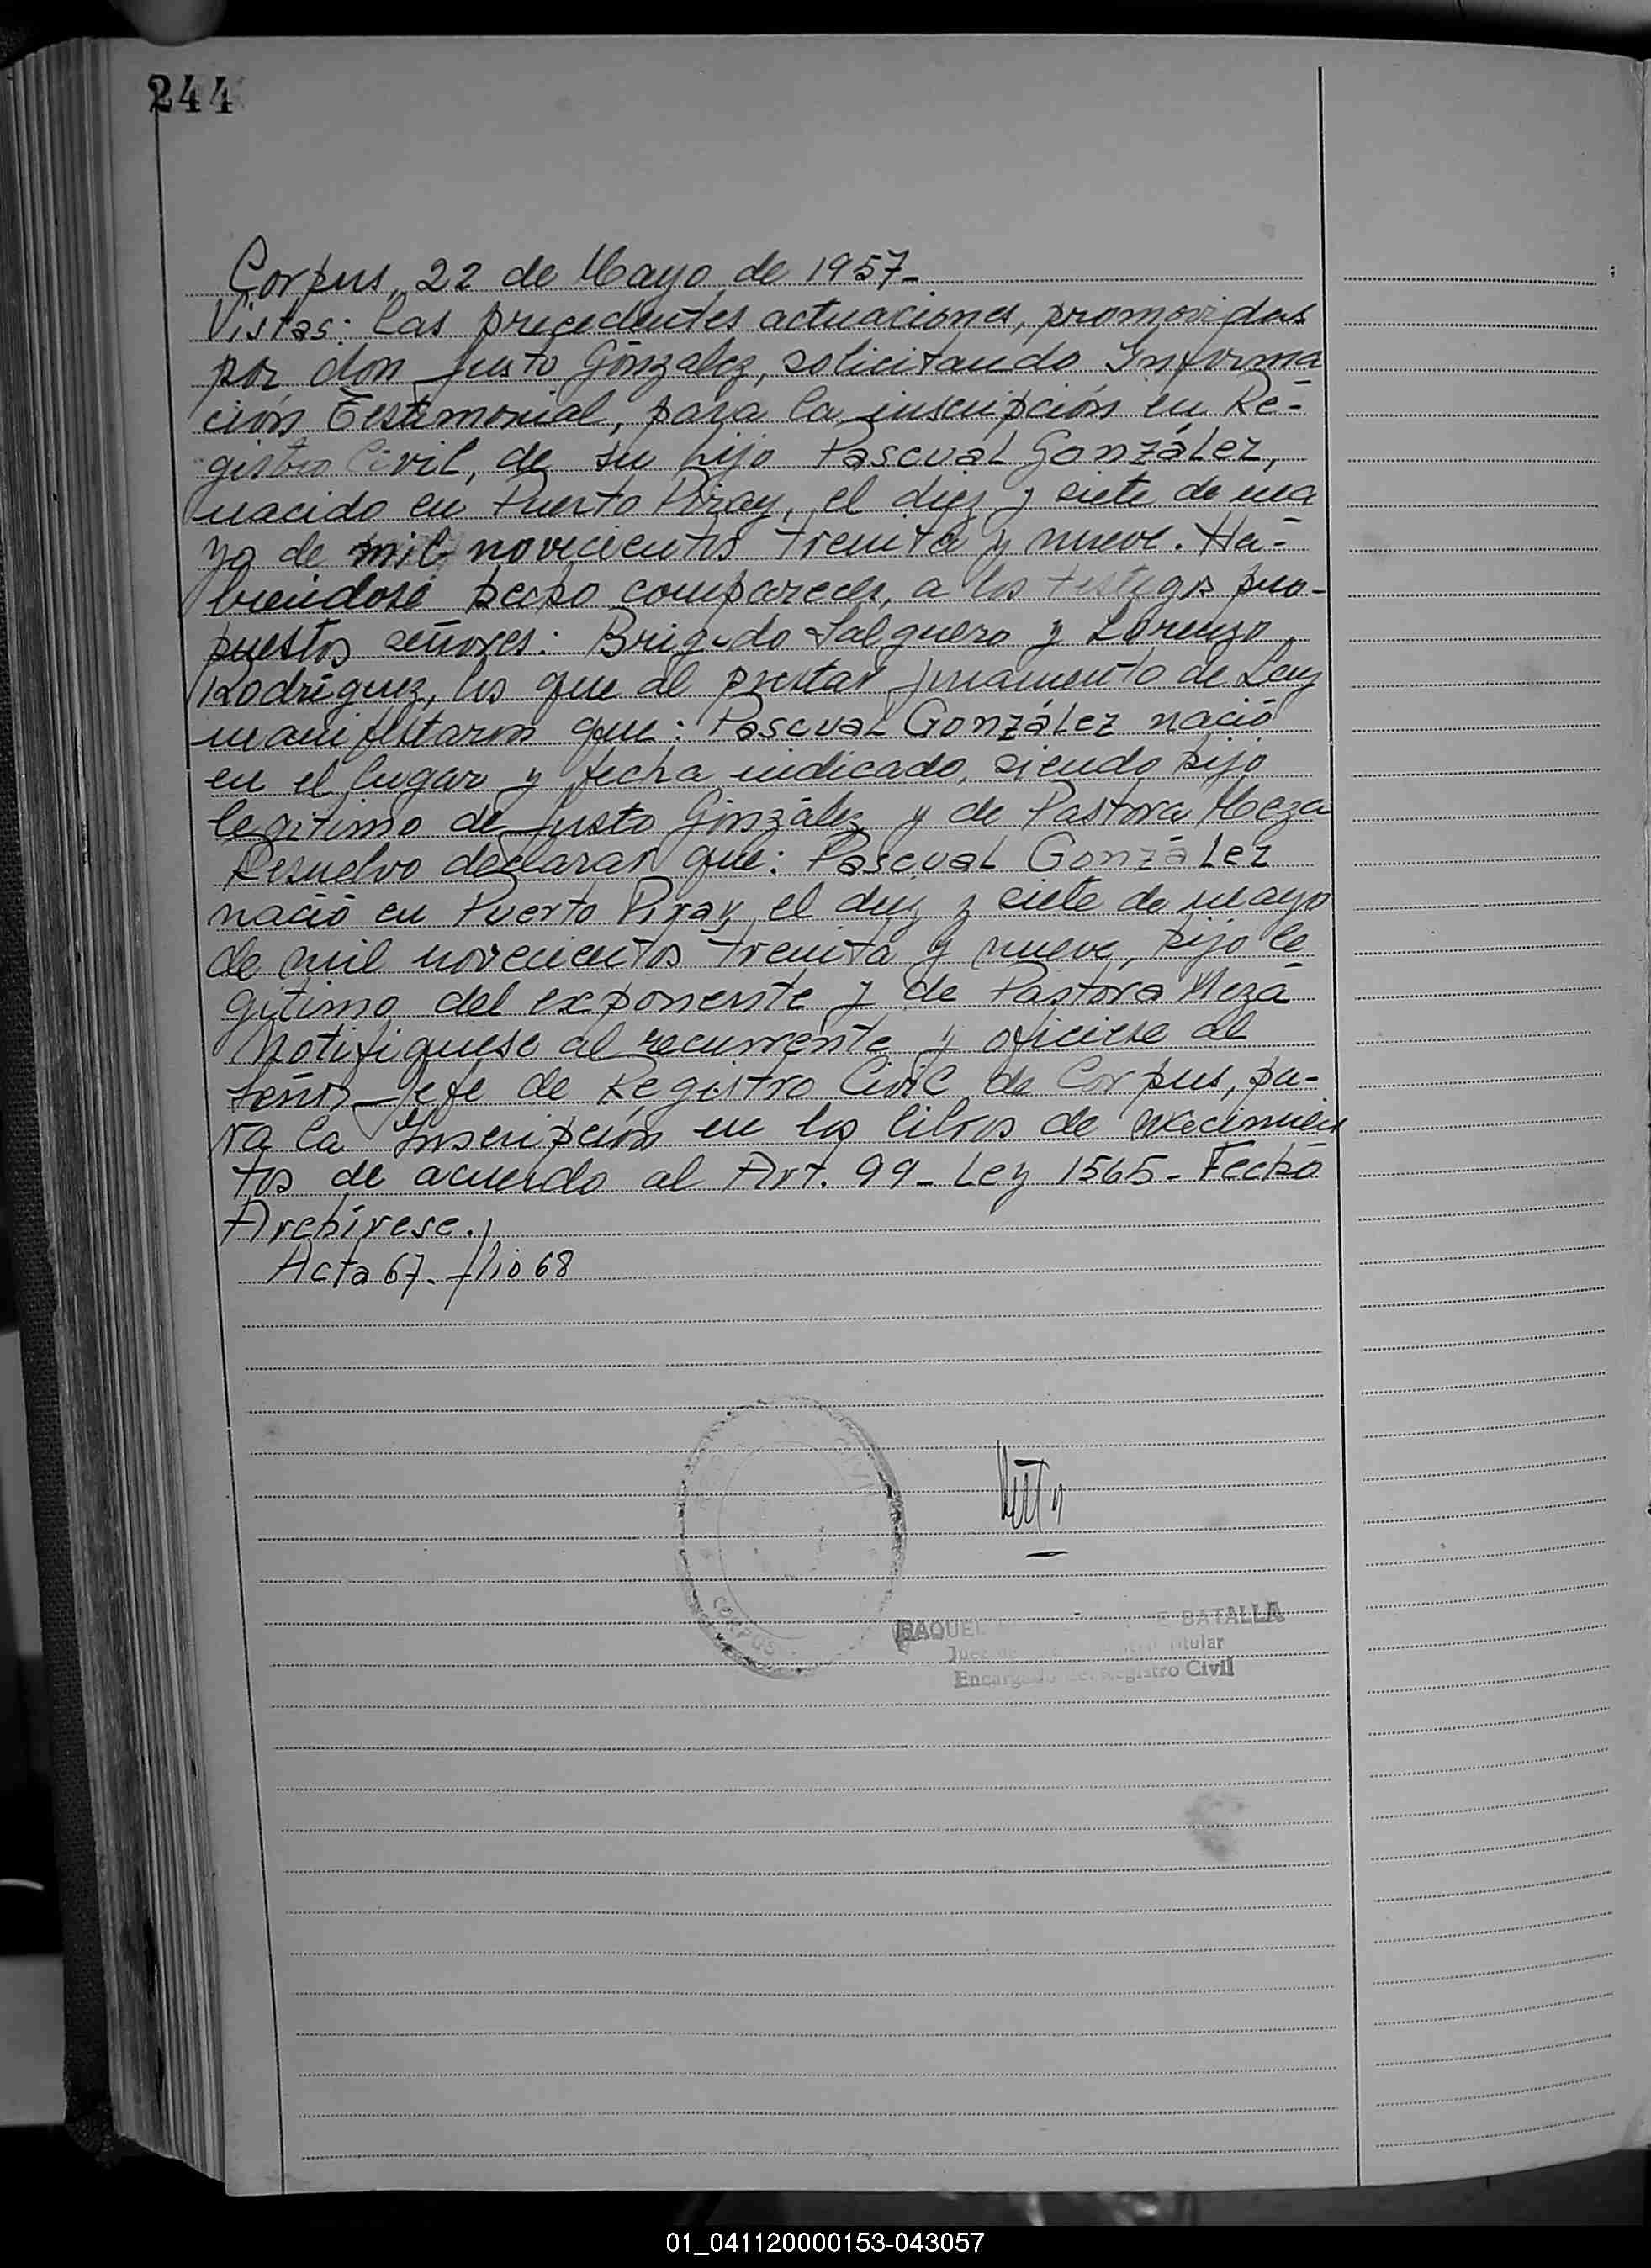 244
Corpus, 22 de Mayo de 1957-
Vistas: las precedentes actuaciones, promovidas
por don Justo González, solicitando Informa
ción Testimonial, para la inscripción en Re-
gistro Civil, de su hijo Pascual González,
nacido en Puerto Piray, el diez y siete de ma
yo de mil novecientos treinta y nueve. Ha-
biendose hecho comparecer, a los testigos pro-
puestos señores: Brigido Salguero y Lorenzo
Rodríguez, los que al prestar juramento de Ley
manifestaron que: Pascual González nació
en el lugar y fecha indicado, siendo hijo
legitimo de Justo González y de Pastora Meza
Resuelvo declarar que: Pascual González
nació en Puerto Piray, el diez y siete de mayo
de mil novecientos treinta y nueve, hijo le
gitimo del exponente y de Pastora Meza
Notifiquese al recurrente y oficiese al
señor Jefe de Registro Civil de Corpus, pa-
ra la Inscripción en los libros de nacimien
tos de acuerdo al Art. 99- Ley 1565- Fecho
Archívese./
Acta 67- folio 68
CORPUS
RAQUEL BATALLA
Juez de Titular
Encargado del Registro Civil
01_041120000153-043057